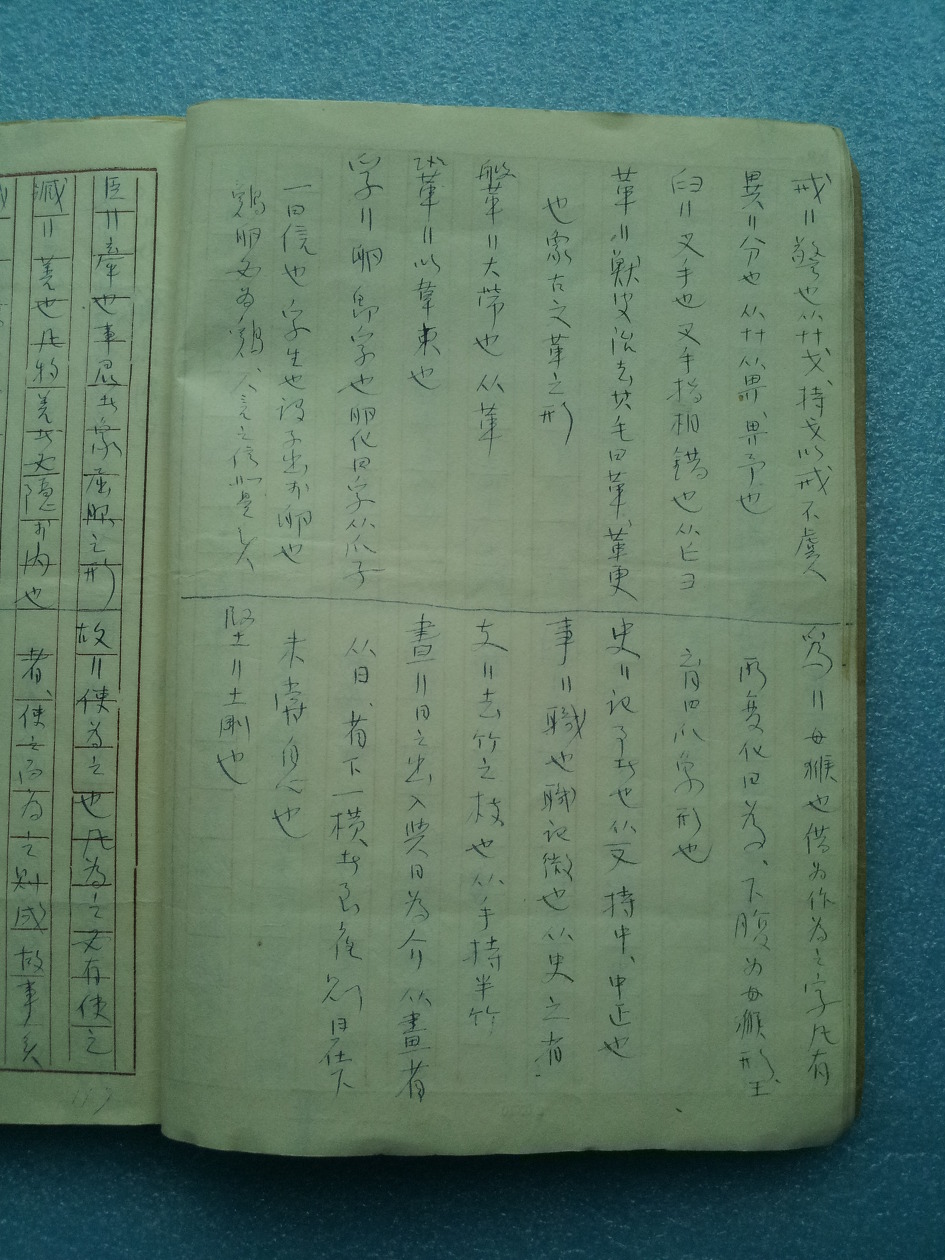 戒〃警也从廾戈、持戈以戒不虞
異〃分也从廾从畀、畀予也
臼〃叉手也叉手指相錯也从匕ヨ
革〃獸皮治去其毛曰革、革更
也象古文革之形
鞶革〃大帶也从革
鞏〃以革束也
孚〃卵即孚也卵化曰孚从爪子
一曰信也孚生也謂子出於卵也
鷄卵必為鷄
為〃母猴也借為作為之字凡有
所變化曰為、下腹為母猴形
爪象形也
史〃記事者也从又持中、中正也
事〃職也職記微也从史之省
支〃去竹之枝也从手持半竹
晝〃日之出入與日為介从畫省
从日、省下一橫者
未嘗
堅土〃土剛也
臣〃牽也事君者象屈服之形
臧〃善也凡物善者必隱於內也
故〃使為之也凡為之必有使之
者、使之而為之則成故事矣